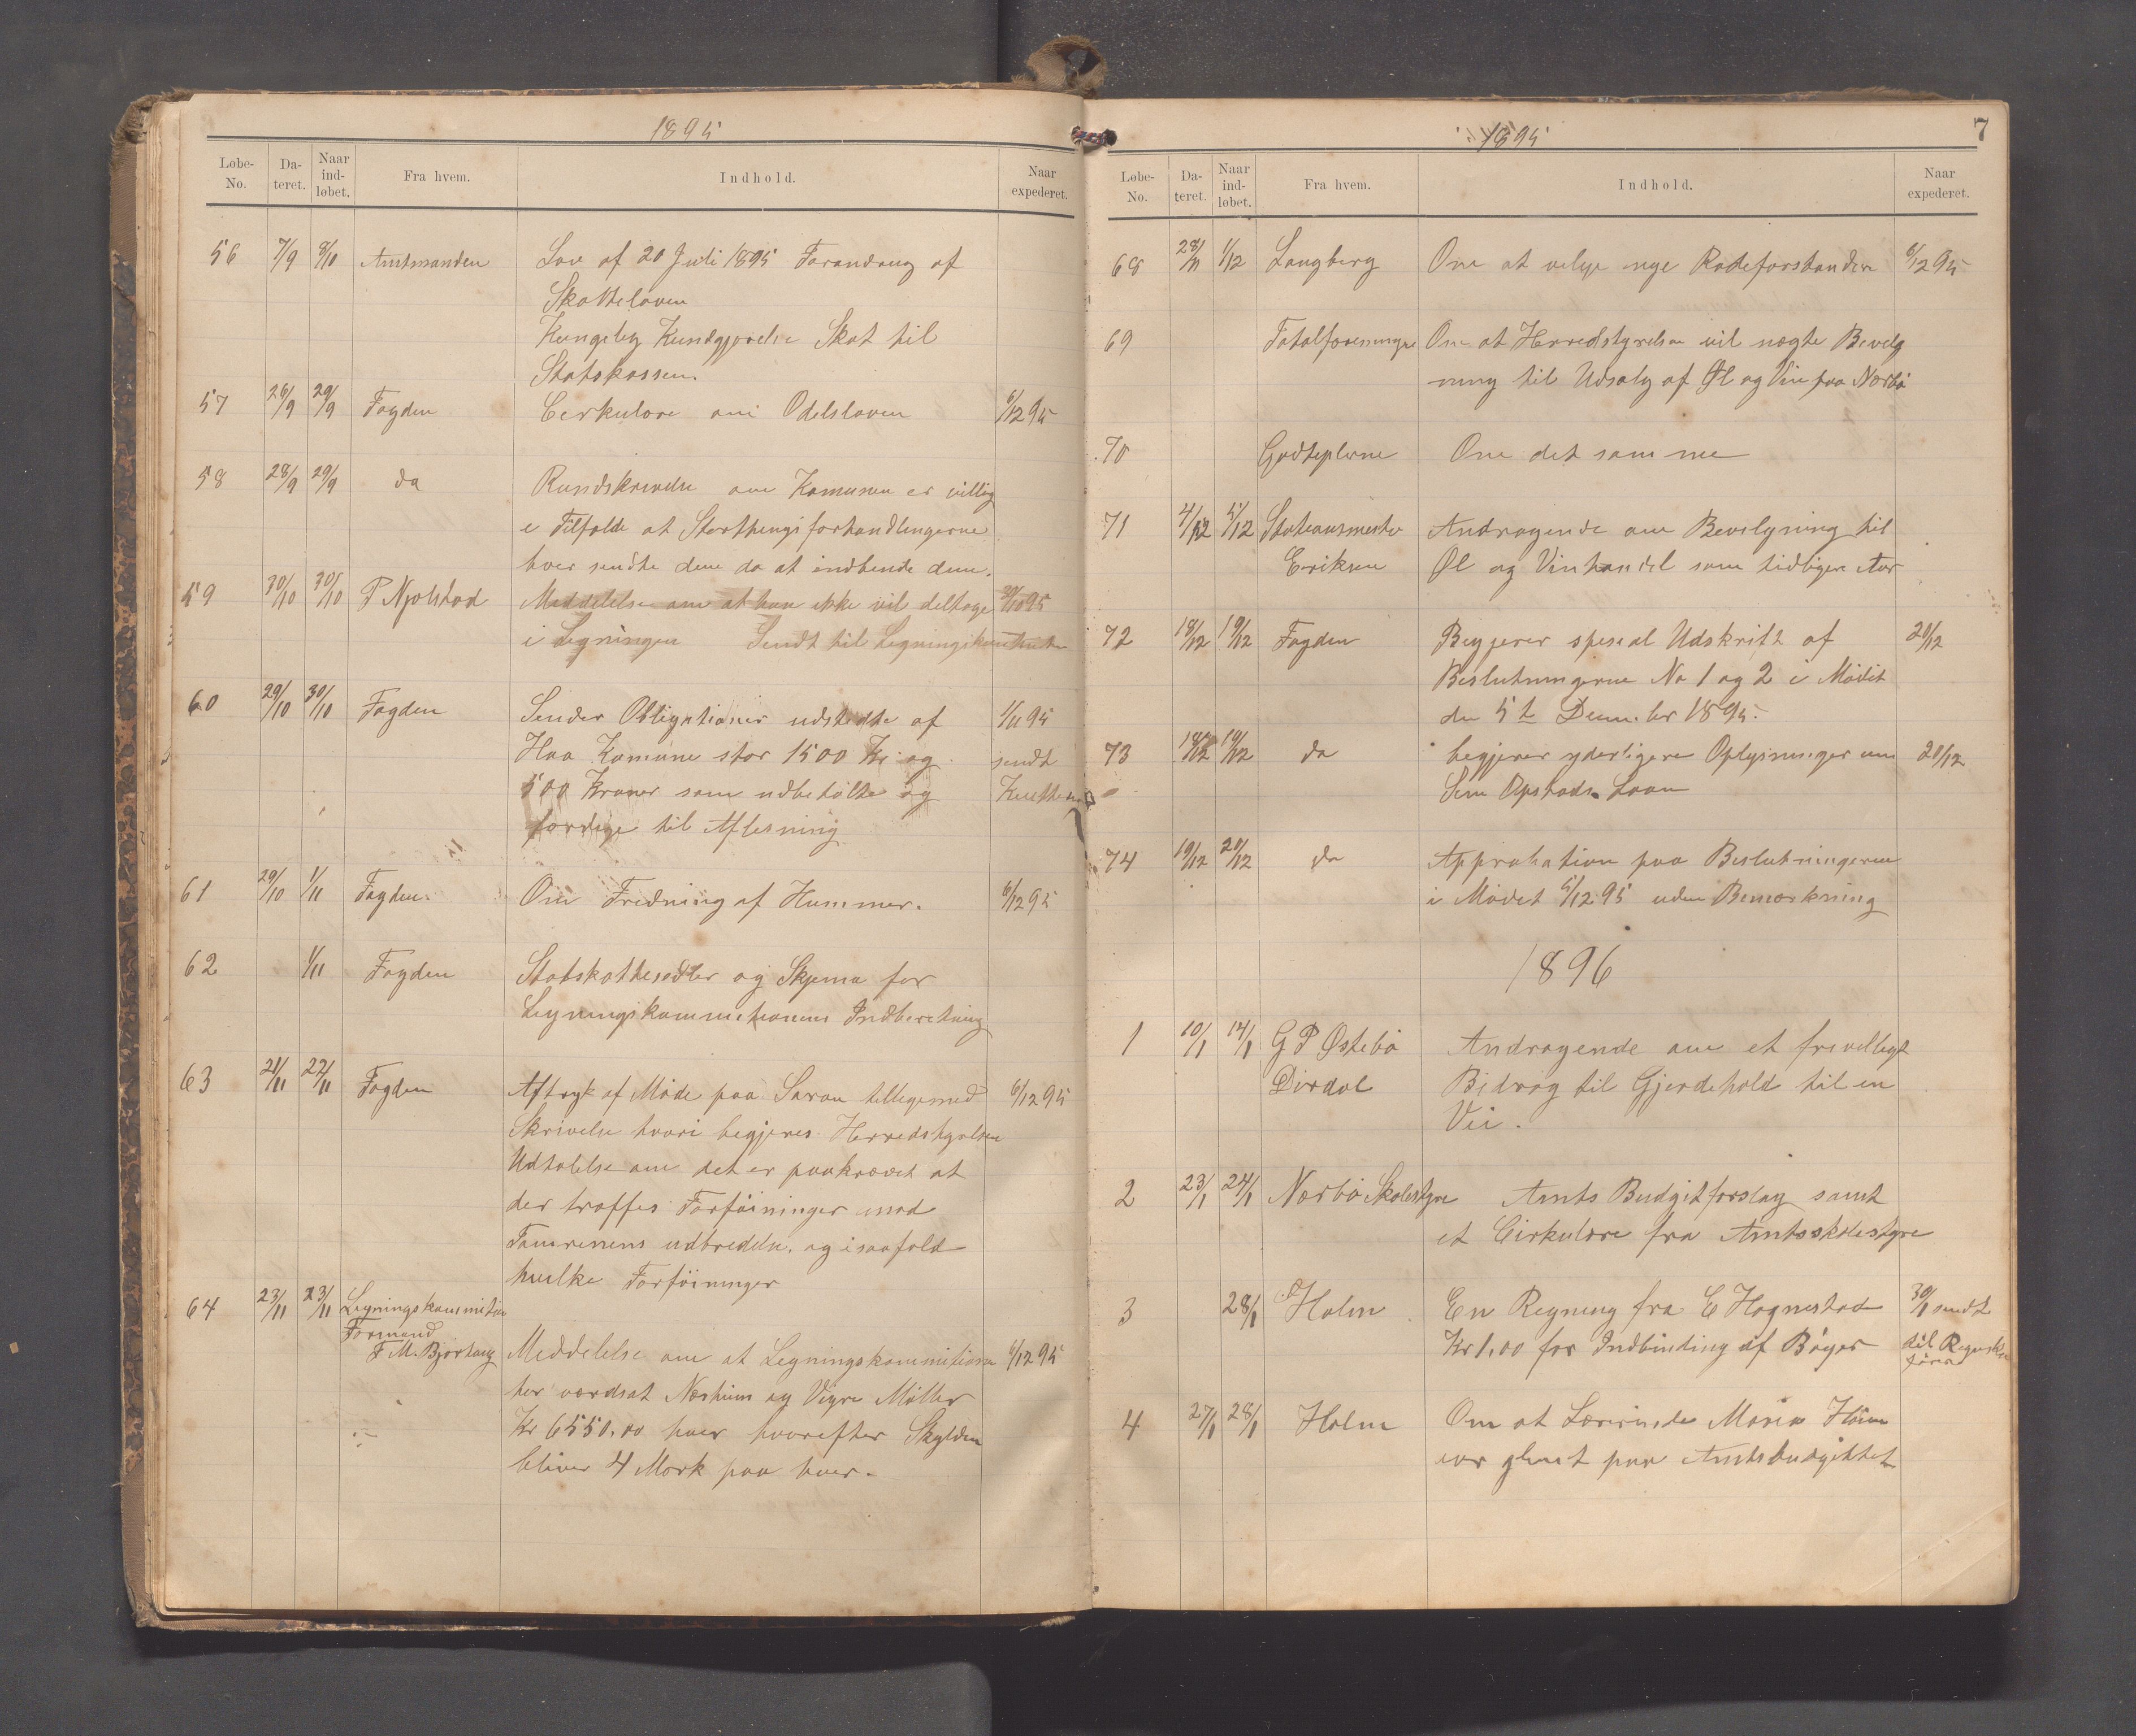 1895
Løbe-No. Da-teret. Naar ind-løbet. Fra hvem. Indhold. Naar expederet.
56 7/9 8/10 Amtmanden Lov af 20 Juli 1895 Forandring af
Skatteloven
Kongelig Kundgjørelse Skat til
Statskassen.
57 26/9 29/9 Fogden Cirkulære om Odelsloven 6/12 95
58 28/9 29/9 do Rundskrivelse om Komunen er villig
i Tilfælde at Storthingsforhandlingerne
bver sendte dem da at indbinde dem.
59 30/10 30/10 P Njolstad Meddelelse om at han ikke vil deltage 30/10 95
i Ligningen Sendt til Ligningskom
60 29/10 30/10 Fogden Sender Obligationer udstedte af 1/11 95
Haa Komune stor 1500 Kr og sendt
500 Kroner som udbetalte og
færdige til Aflesning
61 29/10 1/11 Fogden. Om Fredning af Hummer. 6/12 95
62 1/11 Fogden Statskattesedler og Skjema for
Ligningskommitionens Indberetning
63 21/11 22/11 Fogden Aftryk af Møde paa tilligemed 6/12 95
Skrivelse hvori begjeres Herredstyrelsens
Udtalelse om det er paakrævet at
der træffes Forføininger mod
udbredelse. og isaafald
hvilke Forføininger
64 23/11 23/11 Ligningskommition
Formand
T M. Bjorhaug Meddelelse om at Ligningskommitionen 6/12 95
har værdsat Nærheim og Vigre Møller
Kr 6550.00 hver hvorefter Skylden
bliver 4 Mark paa hver.
1895 7
Løbe-No. Da-teret. Naar ind-løbet. Fra hvem. Indhold. Naar expederet.
68 28/11 1/12 Langberg Om at velge nye Rodeforstandere 6/12 95
69 Totalforeningen Om at Herredstyrelsen vil nægte Bevilg
ning til Udsalg af Øl og Vin paa Nærbø
70 Godteplerne Om det samme
71 4/12 5/12 Stationsmester Andragende om Bevilgning til
Eriksen Øl og Vinhandel som tidligere Aar
72 18/12 19/12 Fogden Begjerer spesial Udskrift af 20/12
Beslutningerne No 1 og 2 i Mødet
den 5t Desember 1895.
73 18/12 19/12 do begjerer yderligere Oplysninger om 20/12
Sem Opstads Laan
74 19/12 20/12 do Approbation paa Beslutningerne
i Mødet 5/12 95 uden Bemærkning
1896
1 10/1 14/1 G P Østebø Andragende om et frivelligt
Dirdal Bidrag til Gjerdehold til en
Vei.
2 23/1 24/1 Nærbø Skolestyre Amts Budgetforslag samt
et Cirkulære fra Amtsskolestyre
3 28/1 Holm En Regning fra E Hognestad 30/1 sendt
Kr 1,00 for Indbinding af Bøger til Regnska
fører
4 27/1 28/1 Holm Om at Lærerinde Maria
var glemt paa Amtsbudgettet